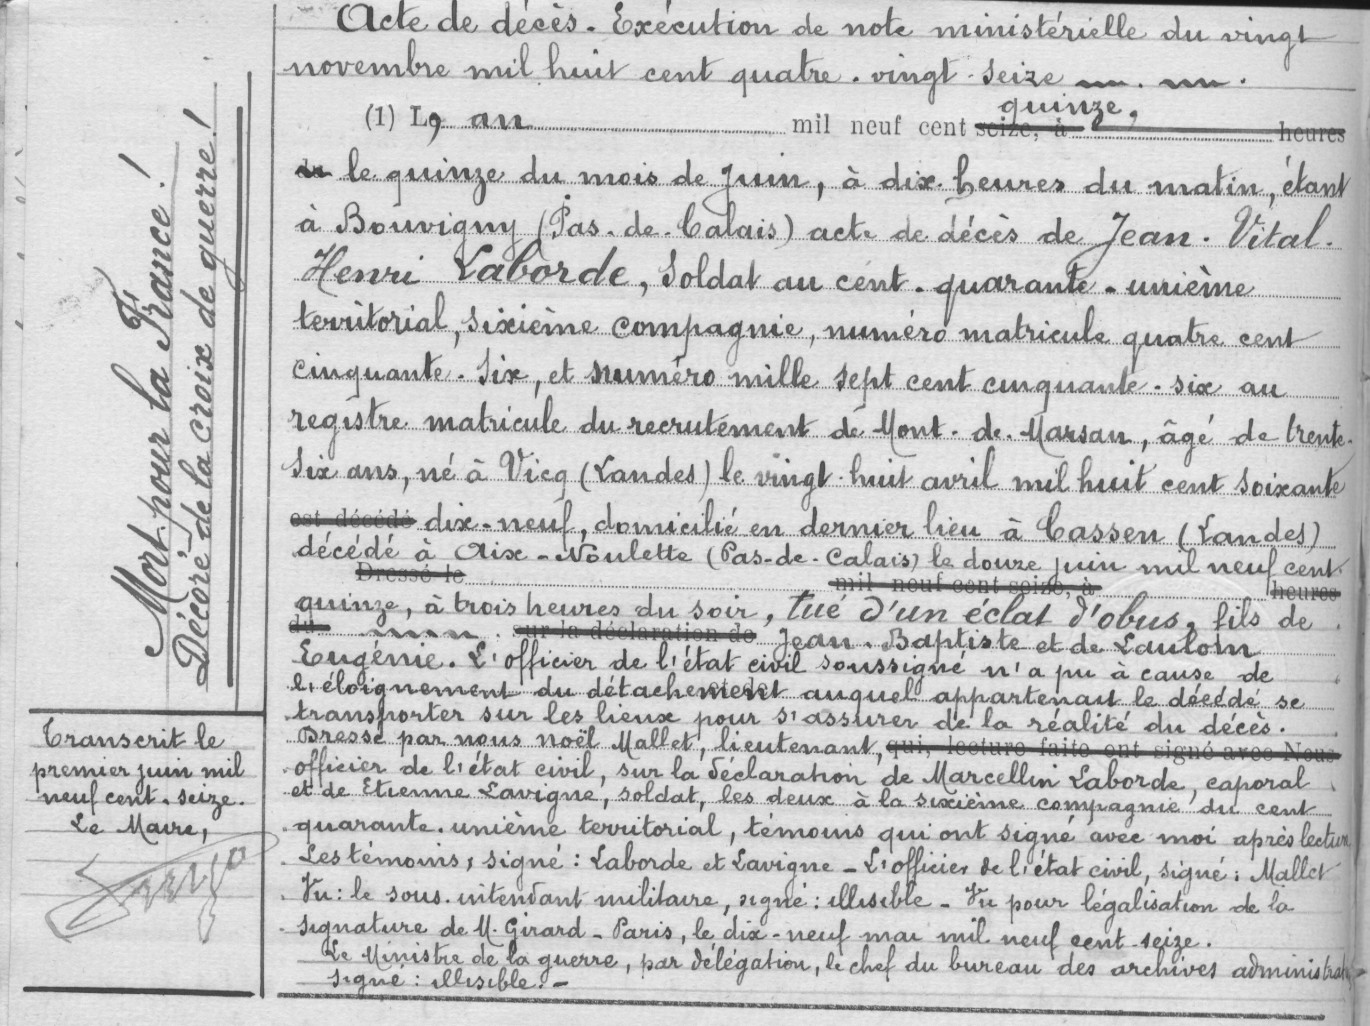 Mort pour la France!
Décoré de la croix de guerre!
Transcrit le
premier juin mil
neuf cent. seize.
Le Maire,
Acte de décès. Exécution de note ministérielle du vingt
novembre mil huit cent quatre. vingt. seize
quinze,
(1) L'an mil neuf cent seize, à heures
du le quinze du mois de Juin, à dix heures du matin, étant
à Bouvigny (Pas. de. Calais) acte de décès de Jean. Vital.
Henri Laborde, soldat au cent. quarante. unième
territorial, sixième compagnie, numéro matricule quatre cent
cinquante. six, et numéro mille sept cent cinquante. six au
registre matricule du recrutement de Mont. de. Marsan, âgé de trente.
six ans, né à Vicq (Landes) le vingt. huit avril mil huit cent soixante
est décédé dix-neuf, domicilié en dernier lieu à Cassen (Landes)
décédé à Aix-Noulette (Pas-de-Calais) le douze juin mil neuf cent.
Dressé le mil neuf cent seize, à heures
quinze, à trois heures du soir, tué d'un éclat d'obus, fils de
du sur la déclaration de Jean. Baptiste et de Laulom
Eugénie. L'officier de l'état civil soussigné n'a pu à cause de
l'éloignement du détachement auquel appartenait le décédé se
transporter sur les lieux pour s'assurer de la réalité du décès.
Dressé par nous Noël Mallet, lieutenant, qui, lecture faite ont signé avec Nous
officier de l'état civil, sur la déclaration de Marcellin Laborde, caporal
et de Etienne Lavigne, soldat, les deux à la sixième compagnie du cent
quarante. unième territorial, témoins qui ont signé avec moi après lecture.
Les témoins, signé: Laborde et Lavigne - L'officier de l'état civil, signé: Mallet
Vu: le sous. intendant militaire, signé: illisible - Vu pour légalisation de la
signature de M. Girard - Paris, le dix-neuf mai mil neuf cent seize.
Le Ministre de la guerre, par délégation, le chef du bureau des archives administrat
signé: illisible. -